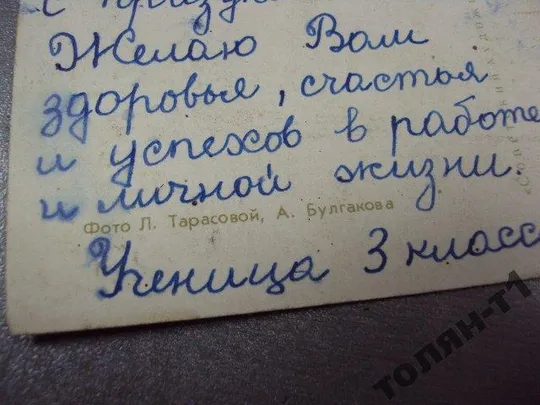 с празд
Желаю Вам
здоровья, счастья
и успехов в работе
и личной жизни.
Фото Л. Тарасовой, А. Булгакова
Ученица 3 класс
толян-т1